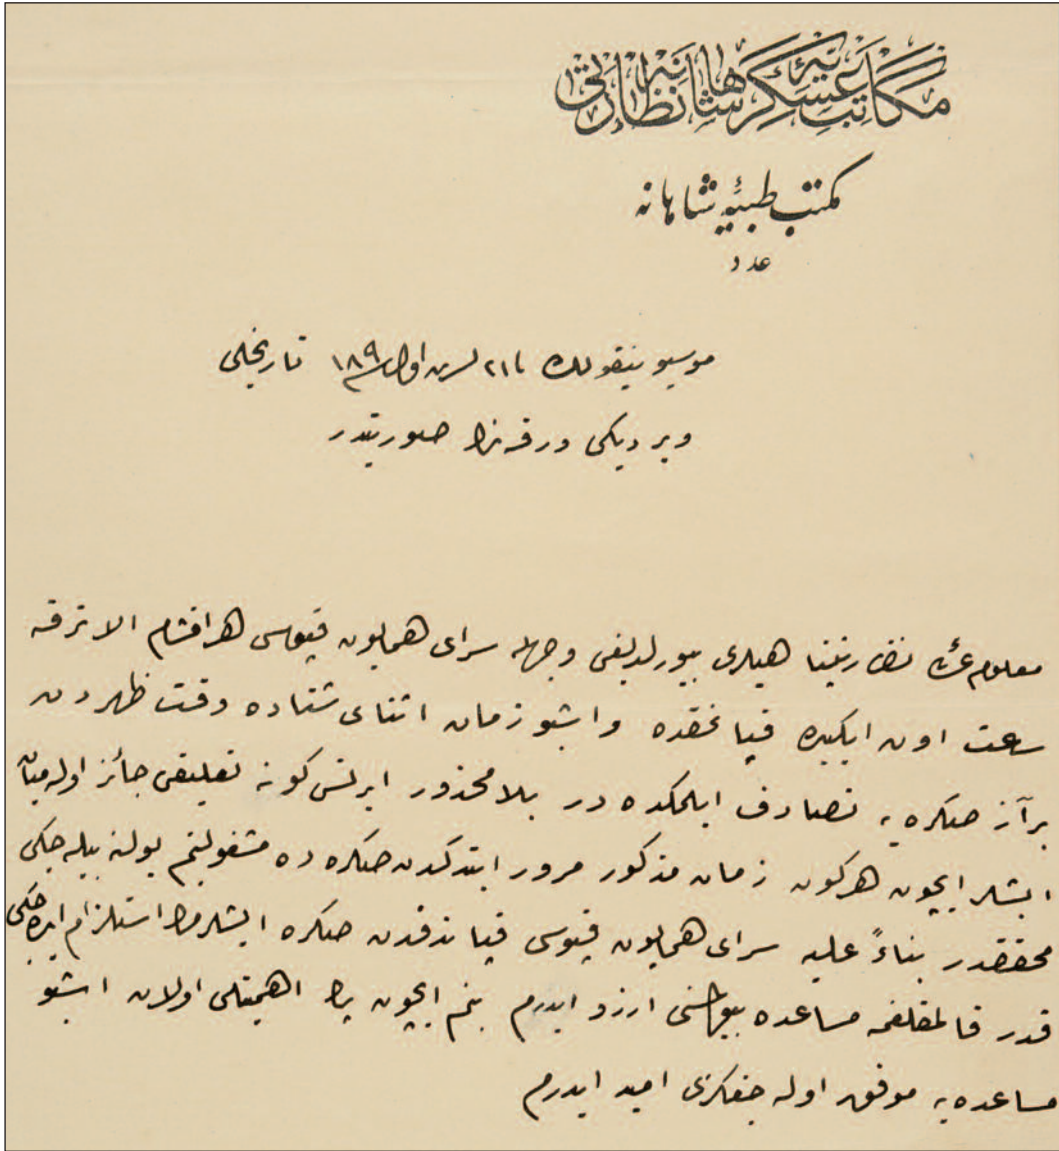 مكاتب عسكريهٔ شاهانه نظارتى
مكتب طبيهٔ شاهانه
عدد
موسيو نيقولنك ٢١ تشرين اول ١٨٩ تاريخلى
ويرديكى ورقه نك صورتيدر
معلوم نظارتپناهيلرى بيورلديغى وجهله سراى همايون قپوسى هر اقشام الاترقه
ساعت اون ايكيده قپانمقده و اشبو زمان اثناى شتاده وقت ظهردن
بر آز صكره يه تصادف ايلمكده در بلا محذور ايرتسى كونه تعليقى جائز اوله ميان
ايشلر ايچون هركون زمان مذكور مرور ايتدكدن صكره ده مشغوليتم بولنه بيله جكى
محققدر بناءً عليه سراى همايون قپوسى قپاندقدن صكره ايشلرمك استلزام ايده جكى
قدر قالمقلغمه مساعده بيورلمسنى ارزو ايدرم بنم ايچون پك اهميتلى اولان اشبو
مساعده يه موفق اوله جغمى اميد ايدرم